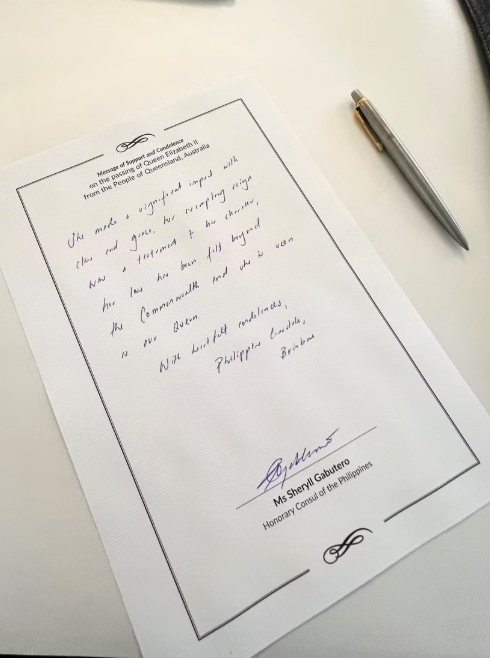 Message of Support and Condolence
on the passing of Queen Elizabeth II
from the People of Queensland, Australia
She made a significant impact with
class and grace, her exemplary reign
was a testament to her character,
her loss has been felt beyond
the Commonwealth and she is seen
as our Queen
With heartfelt condolences,
Philippine Consulate,
Brisbane
Ms Sheryll Gabutero
Honorary Consul of the Philippines